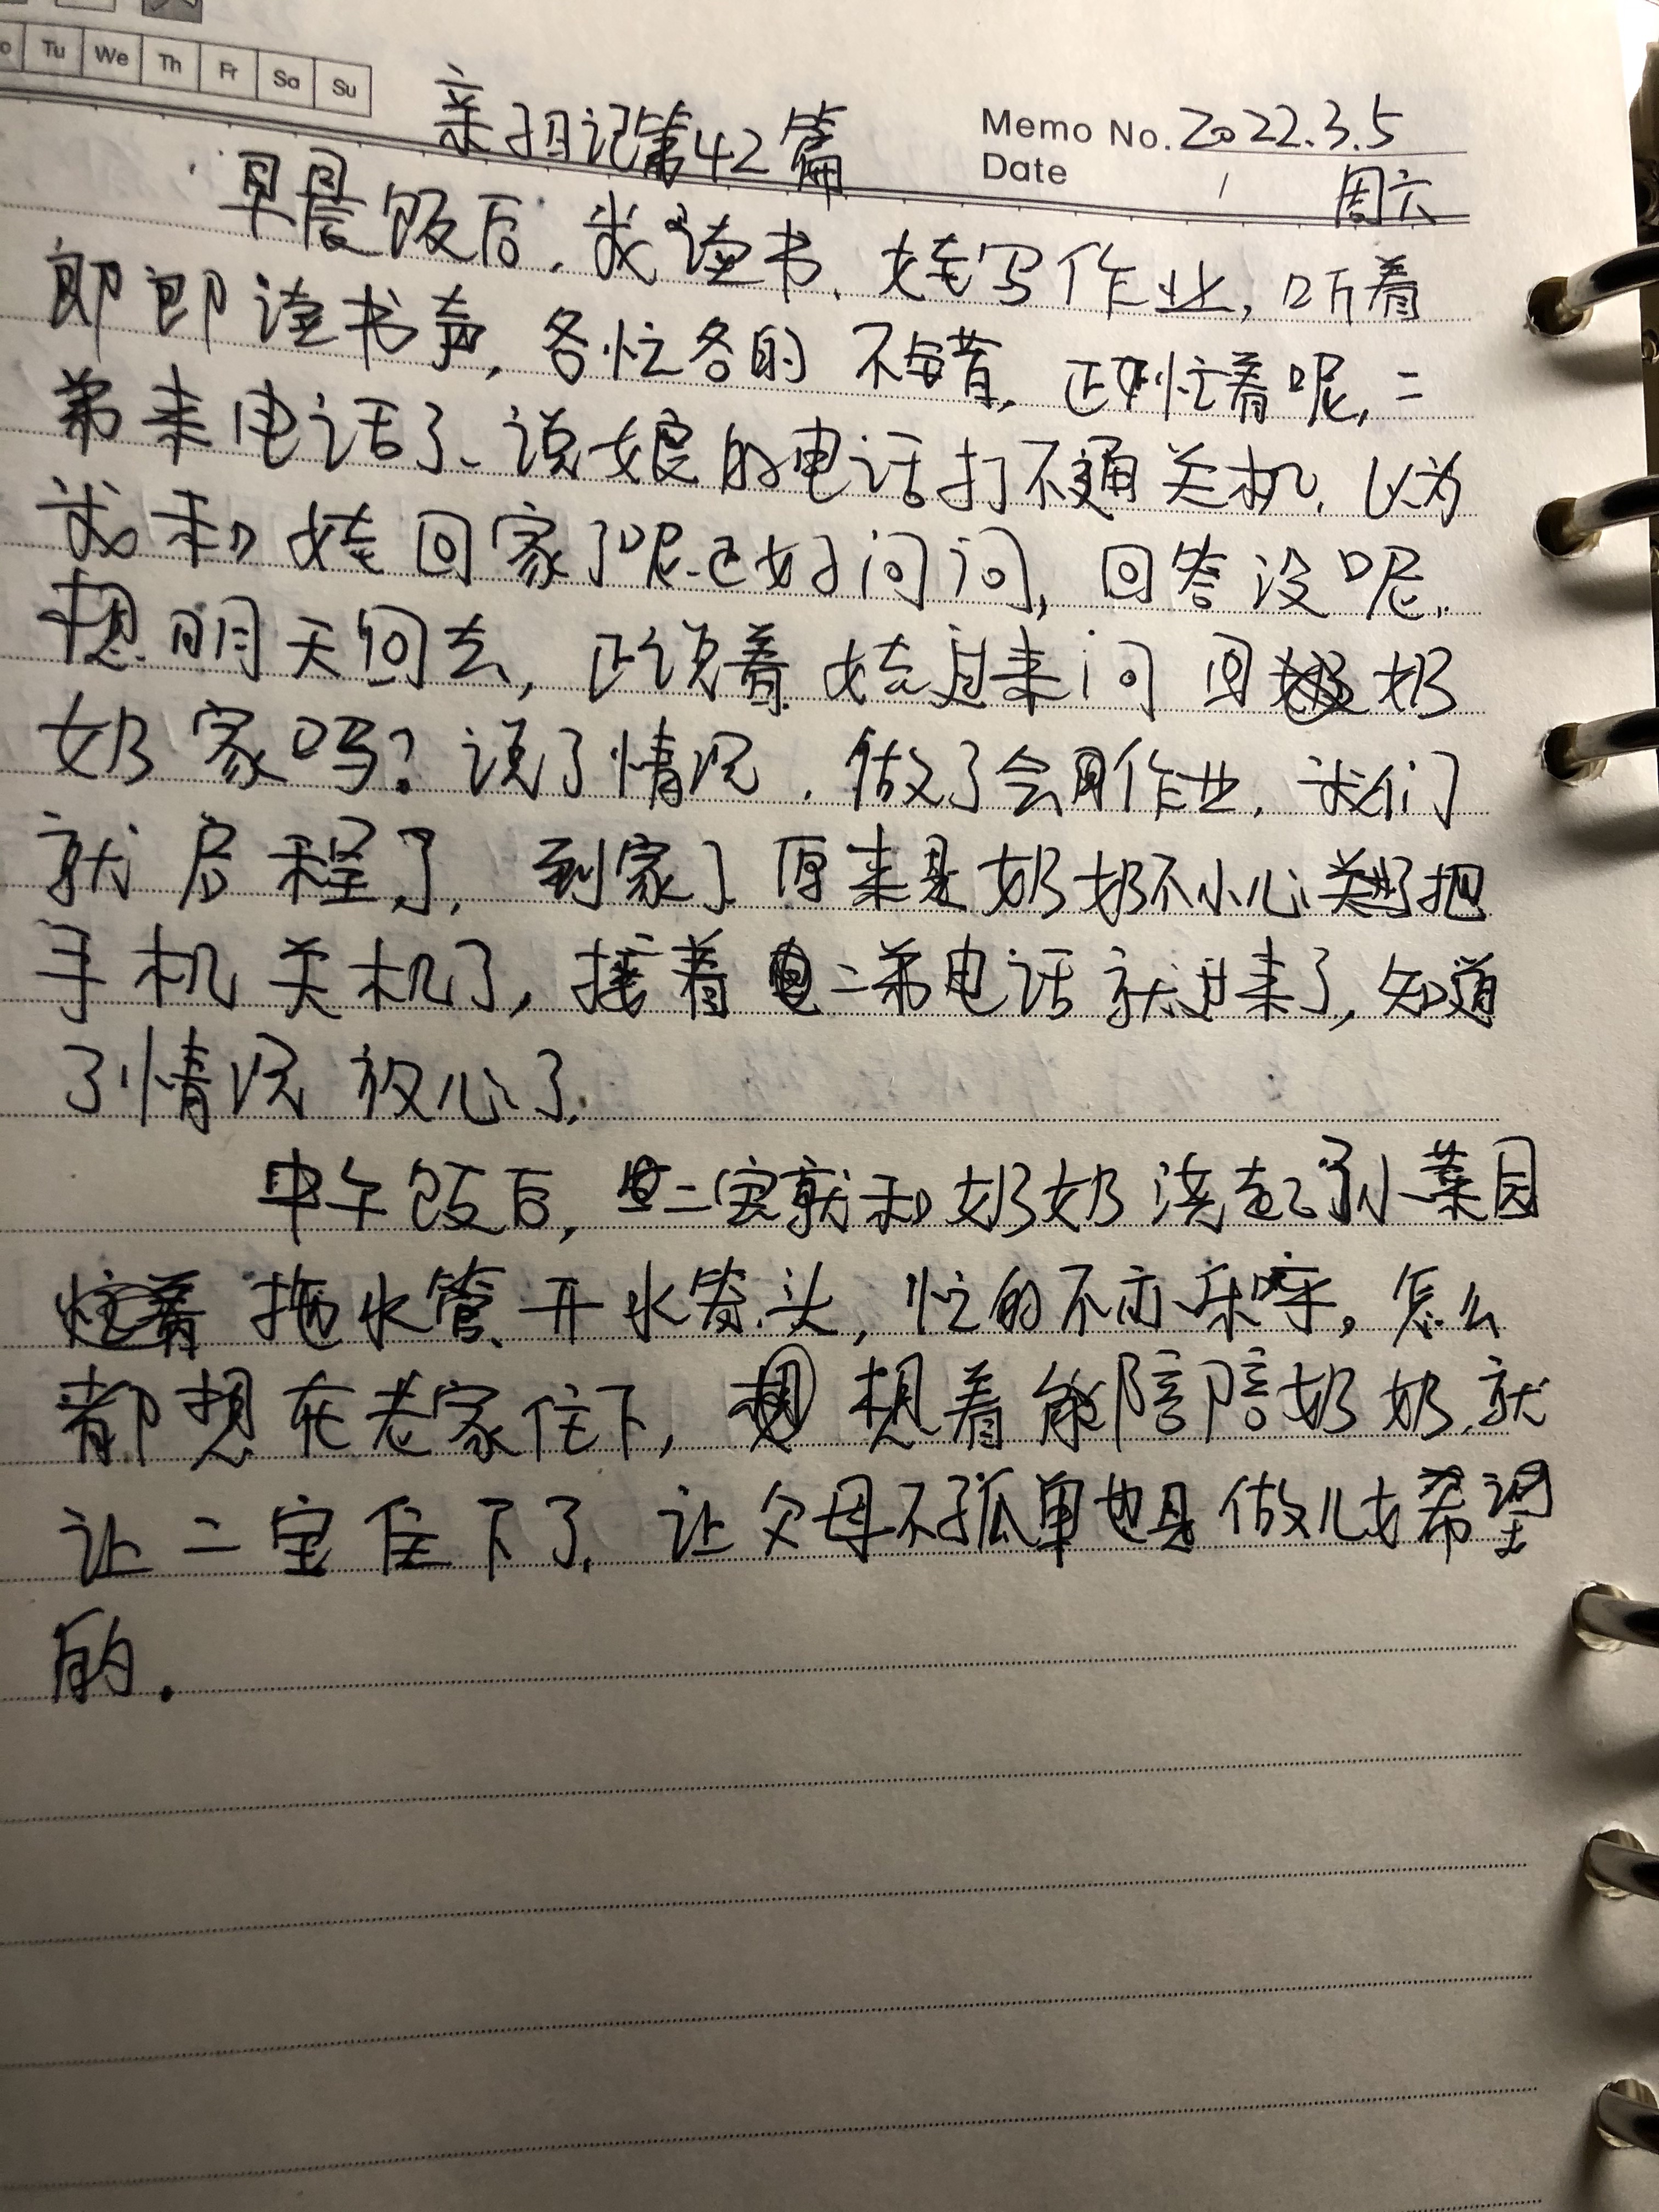 Tu We Th Fr Sa Su
亲子日记第42篇
Memo No. 2022.3.5
Date / 周六
早晨饭后,我读书,娃写作业,听着
郎郎读书声,各忙各的不错,正忙着呢,二
弟来电话了、说娘的电话打不通关机,以为
我和娃回家了呢正好问问,回答没呢.
想明天回去,正说着娃过来问回奶
奶家吗?说了情况,做了会作业,我们
就启程了,到家了原来是奶奶不小心把
手机关机了,接着二弟电话就进来了,知道
了情况放心了.
中午饭后,二宝就和奶奶浇起了小菜园
拖水管、开水管头,忙的不亦乐呼。怎么
都想在老家住下,想着能陪陪奶奶,就
让二宝住下了,让父母不孤单也是做儿女希望
的.